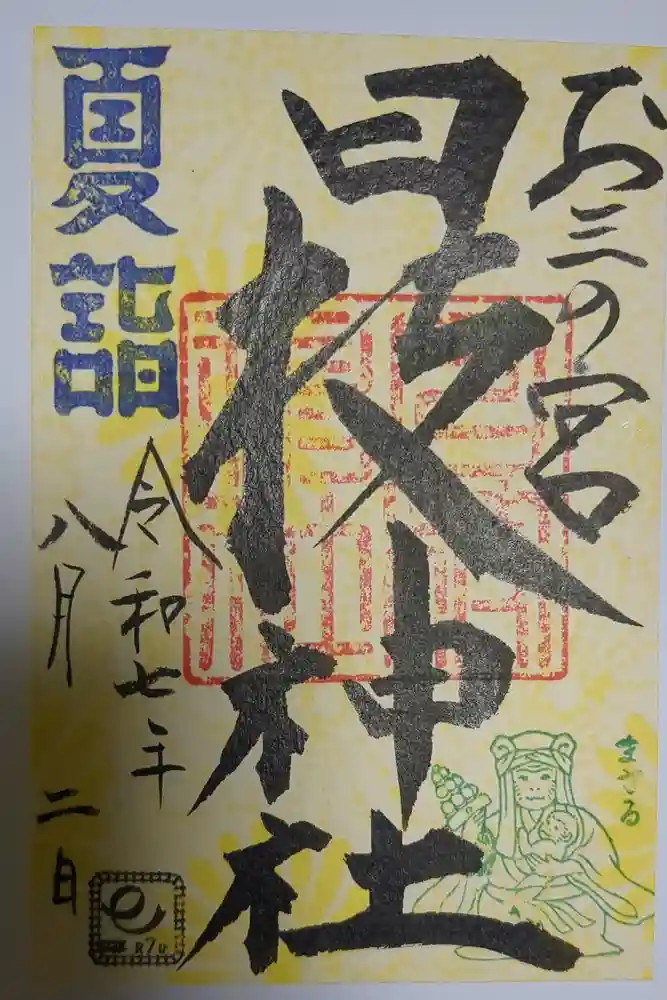 お三の宮
日枝神社
夏詣
令和七年
八月二日
まさる